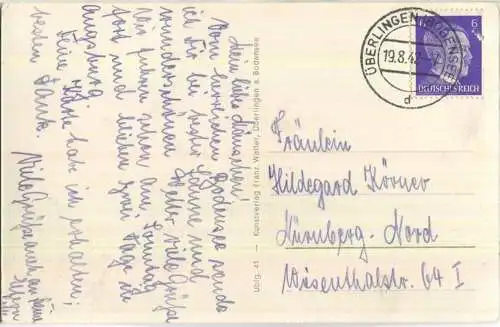 Mein liebes Hannchen!
Vom herrlichen Bodensee sende
ich Dir bei bester Sonne und
wunderschönem Wetter viele Grüße
Wir fahren schon am Sonntag
fort und bleiben zwei Tage in
Augsburg.
Deine Karte hab ich erhalten;
besten Dank.
Viele Grüße auch an Deine
Eltern
ÜBERLINGEN (BODENSEE)
19.8.42
d
6
DEUTSCHES REICH
Überl. 41 — Kunstverlag Franz Walter, Überlingen a. Bodensee
Fräulein
Hildegard Körner
Nürnberg-Nord
Wiesenthalstr. 64 I